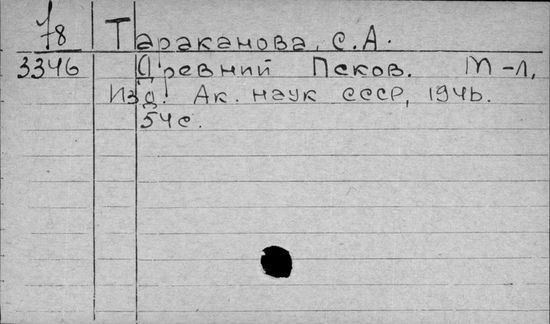 78 Тараканова, С.А.
3346 Древний Псков. М-Л,
Изд. Ак. наук СССР, 1946.
54с.